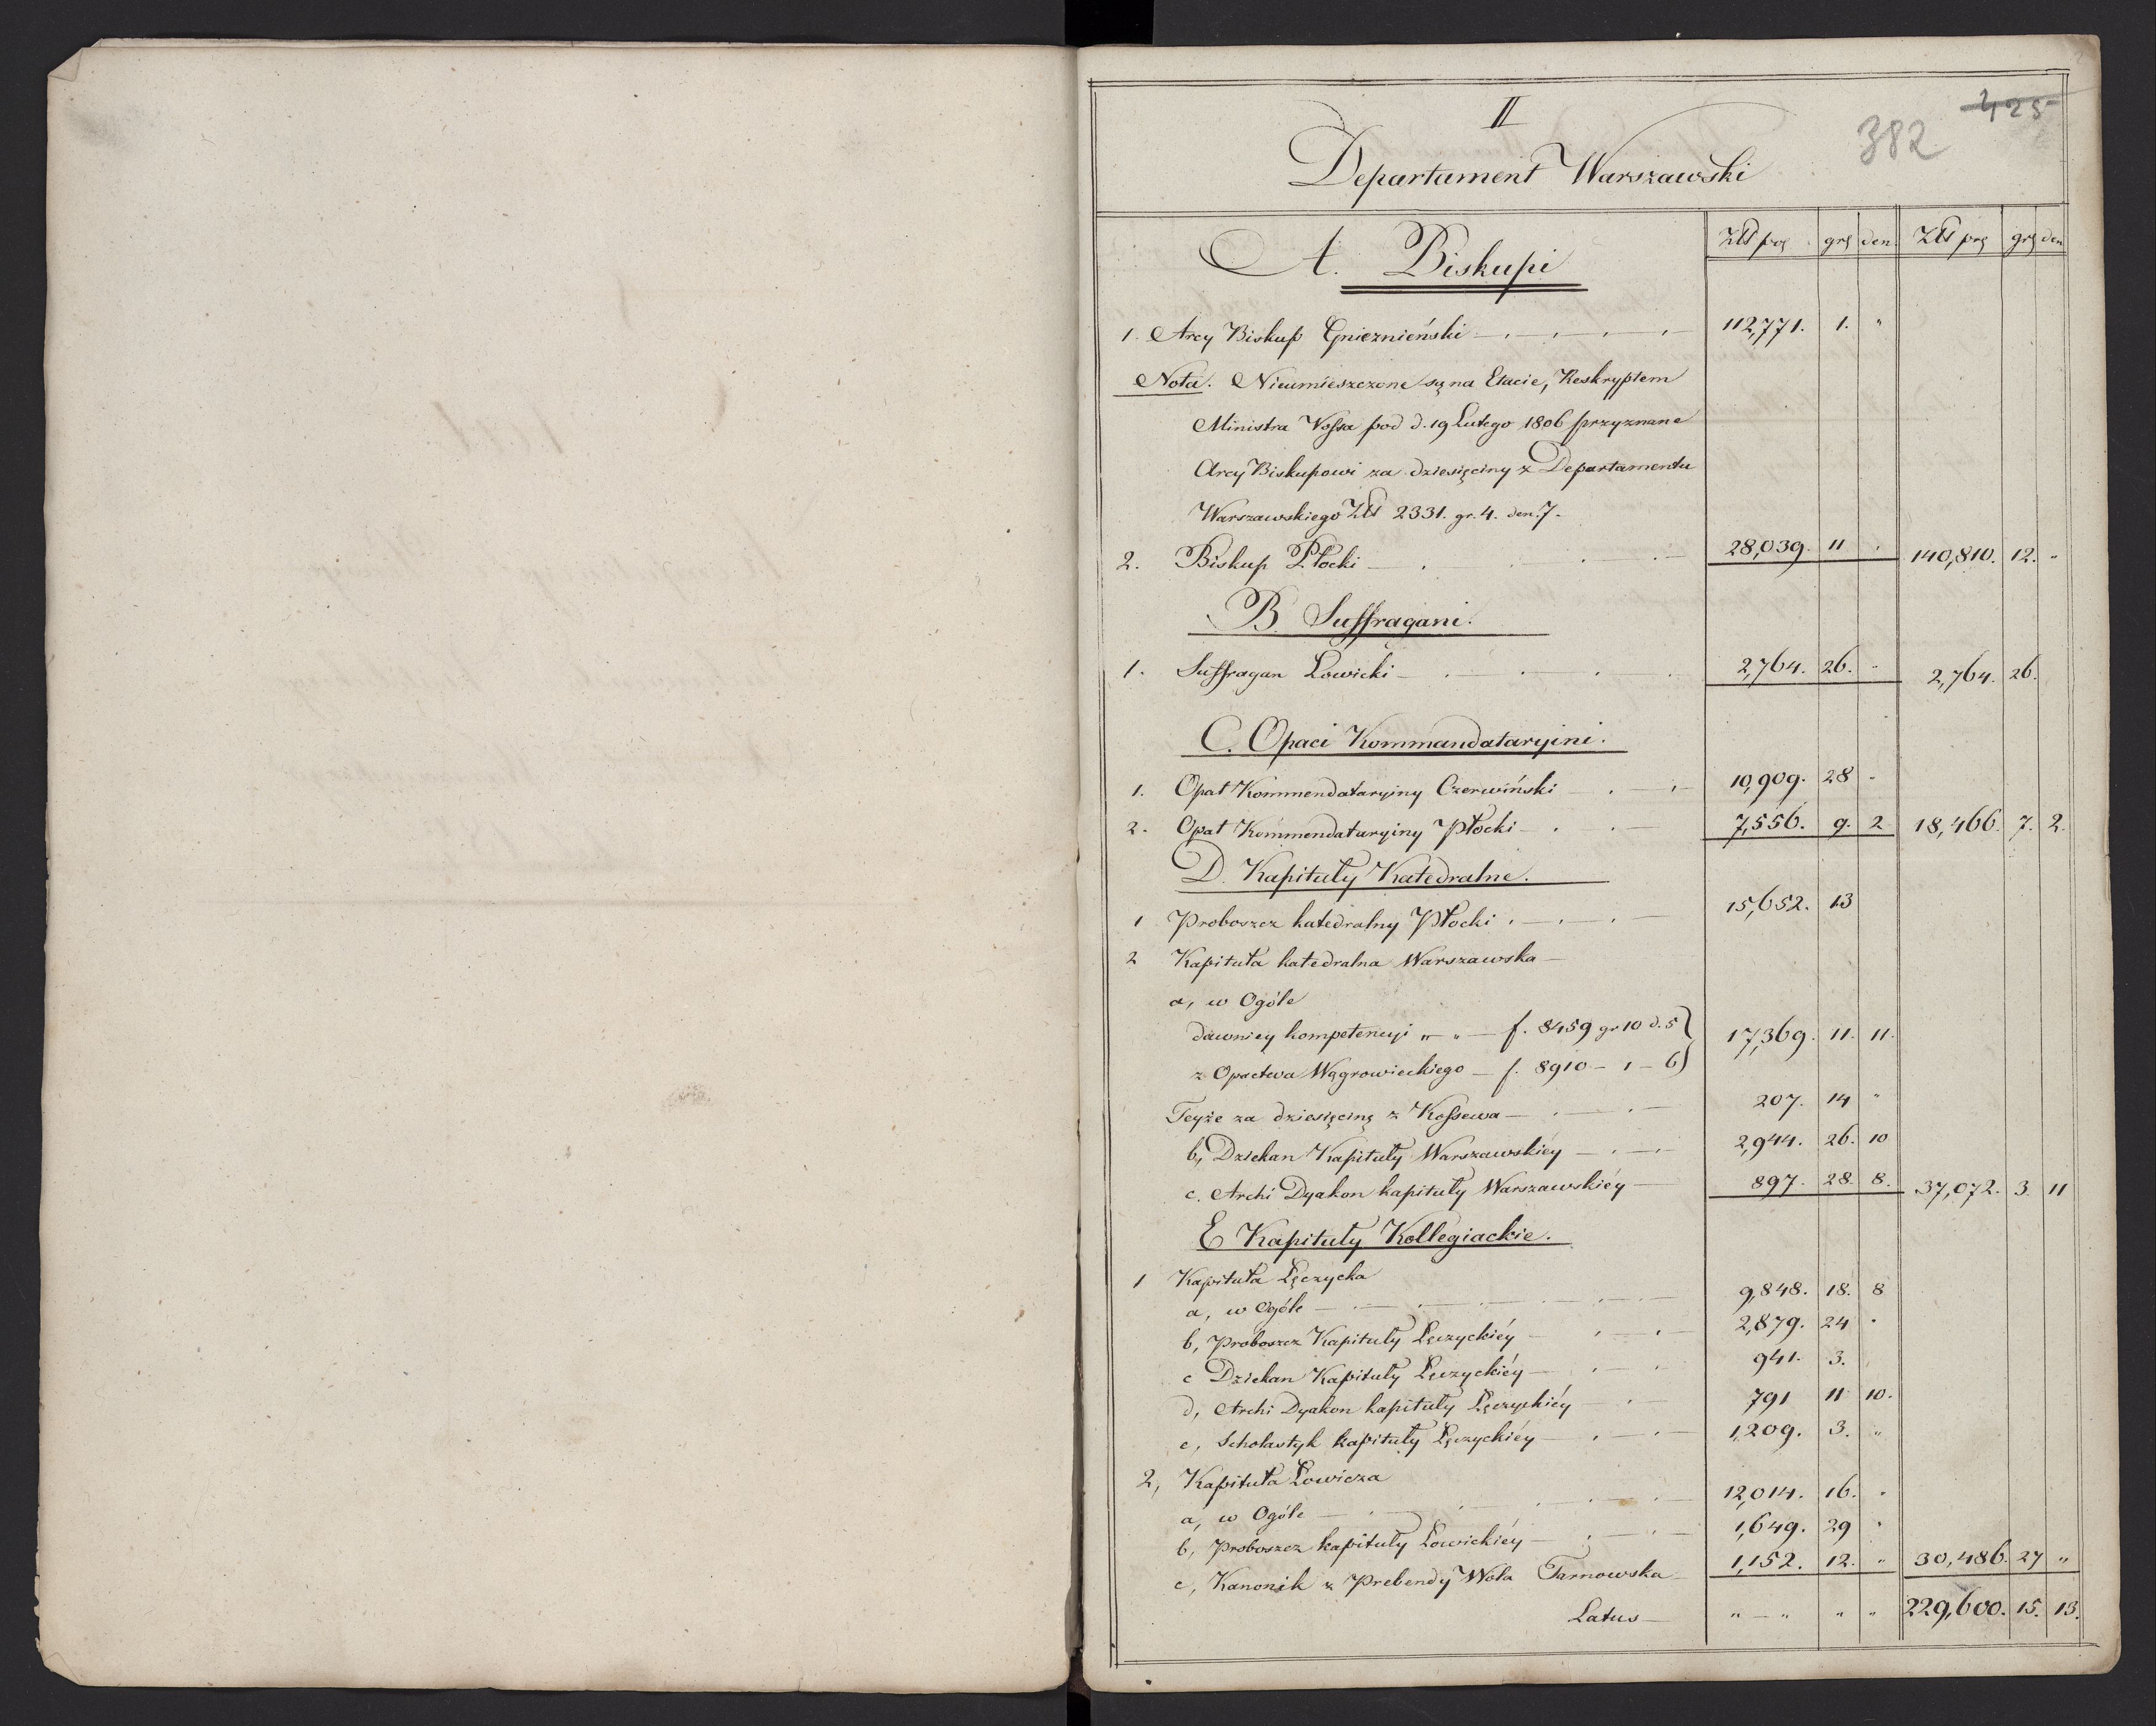 II
425
382
Departament Warszawski
A. Biskupi
Złł prs grs den. Złł prs grs den
1. Arcy Biskup Gnieznieński 112,771. 1. "
Nota. Nieumieszczone są na Etacie, Reskryptem
Ministra Vossa pod d. 19 Lutego 1806 przyznane
Arcy Biskupowi za dziesięciny z Departamentu
Warszawskiego Złł 2331. gr. 4. den. 7.
2. Biskup Płocki 28,039. 11 . 140,810. 12. "
B. Suffragani.
1. Suffragan Łowicki 2,764. 26. " 2,764. 26.
C. Opaci Kommandataryini.
1. Opat Kommendataryiny Czerwiński 10,909. 28 "
2. Opat Kommendataryiny Płocki 7,556. 9. 2 18,466. 7. 2.
D. Kapituły Katedralne.
1 Proboszcz katedralny Płocki 15,652. 13
2 Kapituła katedralna Warszawska
a, w Ogóle
dawniey kompetencyi " " f. 8459 gr 10 d. 5 } 17,369. 11. 11.
z Opactwa Wągrowieckiego f. 8910 - 1 - 6 }
Teyże za dziesięcinę z Kossewa 207. 14 "
b, Dziekan Kapituły Warszawskiéy 2,944. 26. 10
c. Archi Dyakon kapituły Warszawskiéy 897. 28. 8. 37,072. 3. 11
E Kapituły Kollegiackie.
1 Kapituła Łęczycka
a, w Ogóle 9,848. 18. 8
b, Proboszcz Kapituły Łęczyckiéy 2,879. 24 "
c Dziekan Kapituły Łęczyckiéy 941. 3.
d, Archi Dyakon kapituły Łęczyckiéy 791 11 10.
e, Scholastyk kapituły Łęczyckiéy 1,209. 3. "
2, Kapituła Łowicza
a, w Ogóle 12,014. 16. "
b, Proboszcz kapituły Łowickiéy 1,649. 29 "
c, Kanonik z Prebendy Wola Tarnowska 1,152. 12. " 30,486. 27 "
Latus " - " " " 229,600. 15. 13.